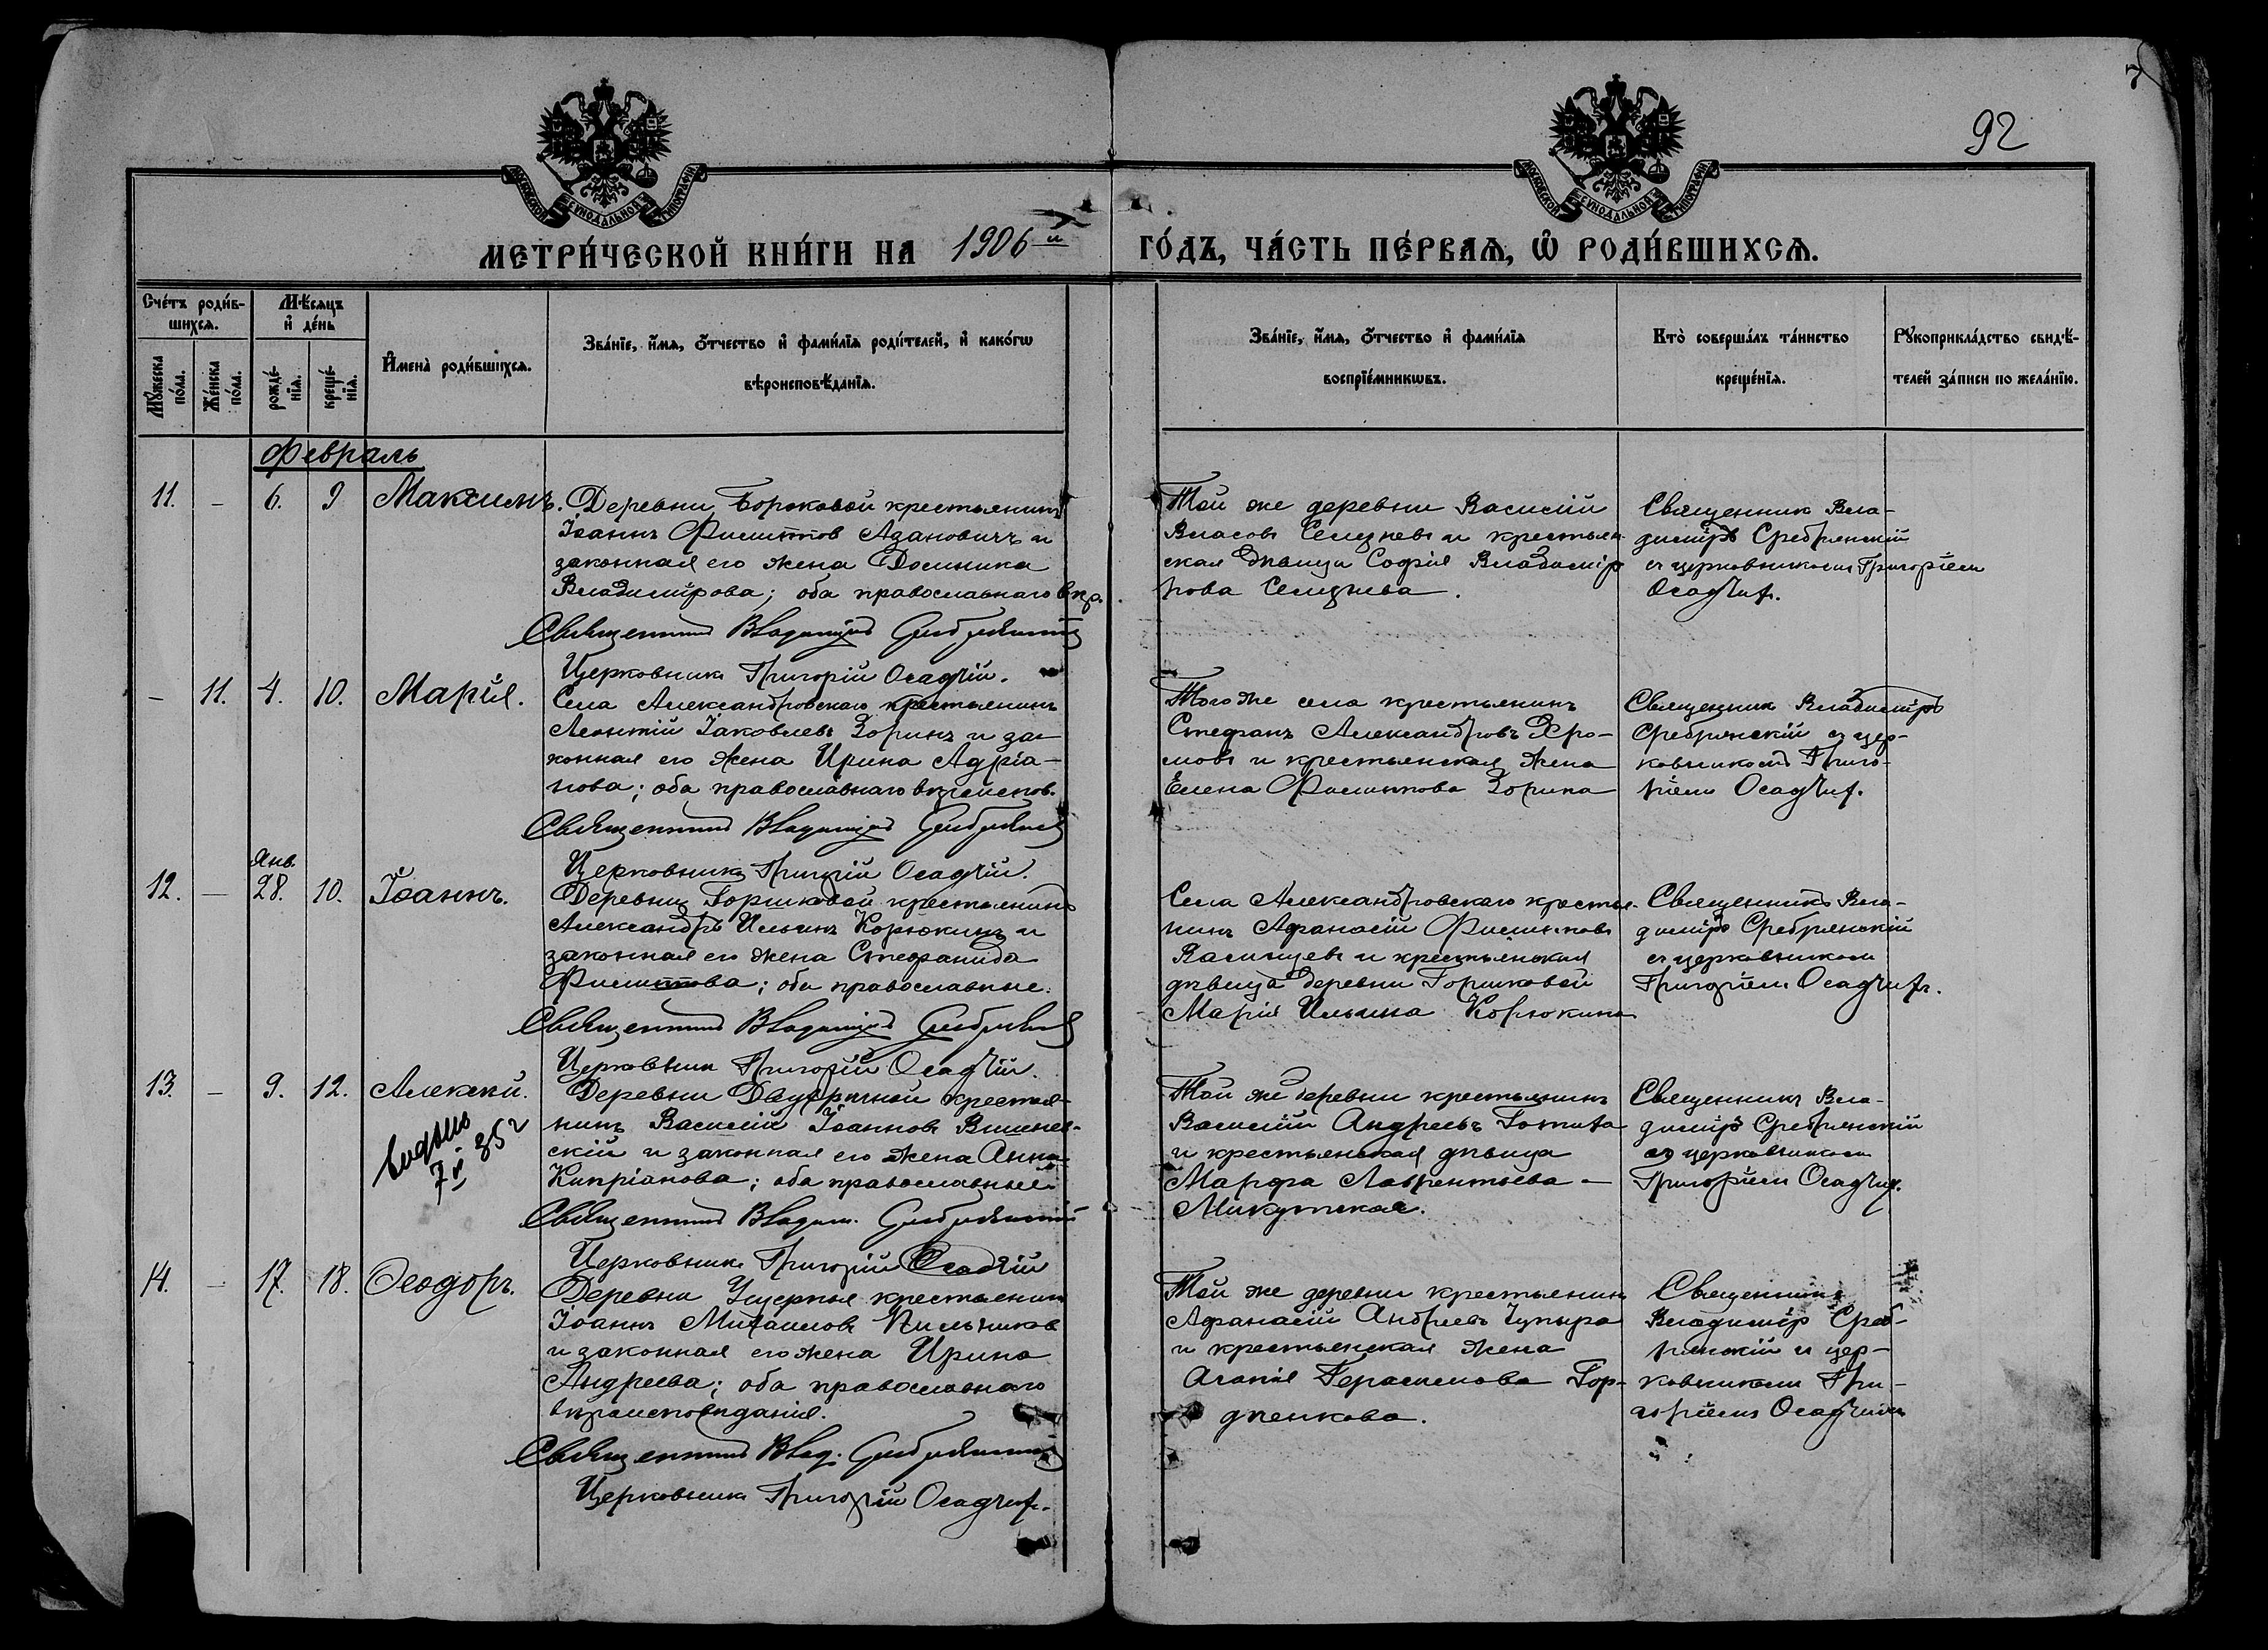 92
МОСКОВСКОЙ СѴНОДАЛЬНОЙ ТИПОГРАФІИ
МОСКОВСКОЙ СѴНОДАЛЬНОЙ ТИПОГРАФІИ
МЕТРИ́ЧЕСКОЙ КНИ́ГИ НА 1906 й ГО́ДЪ, ЧА́СТЬ ПЕ́РВАѦ, Ѽ РОДИ́ВШИХСѦ.
Сче́тъ роди́вшихсѧ.
Мꙋ́жеска по́ла.
Же́нска по́ла.
Мѣ́сѧцъ и҆ де́нь
рожде́нїѧ.
креще́нїѧ.
И҆мена̀ роди́вшихсѧ.
Зва́нїе, и҆́мѧ, ѻ҆́тчество и҆ фами́лїѧ роди́телей, и҆ како́гѡ
вѣроисповѣ́данїѧ.
Зва́нїе, и҆́мѧ, ѻ҆́тчество и҆ фами́лїѧ
воспрїе́мникѡвъ.
Кто̀ соверша́лъ та́инство
креще́нїѧ.
Рꙋкоприкла́дство свидѣ́-
телей за́писи по жела́нїю.
Февраль
11. – 6. 9 Максимъ.
Деревни крестьянинъ
Іоаннъ Филиппов Азановичъ и
законная его жена Домника
Владимірова; оба православнаго вѣр.
Священникъ Владиміръ Сребрянскій
Церковникъ Григорій Осадчій.
Той же деревни Василій
Власовъ Селезневъ и крестьян-
ская дѣвица Софія Владимір
рова Селезнева.
Священник Вла-
диміръ Сребрянскій
съ церковникомъ Григоріем
Осадчій.
– 11. 4. 10. Марія.
Села Александровскаго крестьянинъ
Леонтій Іаковлевъ Зоринъ и за-
конная его жена Ирина Адріа-
нова; оба православнаго вѣроиспов.
Священникъ Владиміръ Сребрянскій
Церковникъ Григорій Осадчій.
Того же села крестьянинъ
Стефанъ Александровъ Хро-
мовъ и крестьянская жена
Елена Филиппова Зорина
Священник Владиміръ
Сребрянскій съ цер-
ковникомъ Григо-
ріемъ Осадчій.
12. – Янв. 28. 10. Іоаннъ.
Деревни Горшковой крестьянинъ
Александръ Ильинъ Корюкинъ и
законная его жена Стефанида
Филиппова; оба православные.
Священникъ Владиміръ Сребрянскій
Церковник Григорій Осадчій.
Села Александровскаго крестья-
нинъ Афанасій Филипповъ
и крестьянская
дѣвица деревни Горшковой
Марія Ильина Корюкина
Священникъ Вла-
диміръ Сребрянскій
съ церковникомъ
Григоріемъ Осадчій.
13. – 9. 12. Алексѣй.
7 й 352
Деревни Двуѣрной крестья-
нинъ Василій Іоанновъ Вишнев-
скій и законная его жена Анна
Кипріанова; оба православные.
Священникъ Владим. Сребрянскій
Церковникъ Григорій Осадчій
Той же деревни крестьянинъ
Василій Андреевъ
и крестьянская дѣвица
Марфа Лаврентьева –
Микутская.
Священникъ Вла-
диміръ Сребрянскій
съ церковникомъ
Григоріемъ Осадчій.
14. – 17. 18. Ѳеодоръ.
Деревни крестьянин
Іоаннъ Михаиловъ Пильников
и законная его жена Ирина
Андреева; оба православнаго
вѣроисповѣданія.
Священникъ Влад. Сребрянскій
Церковникъ Григорій Осадчій.
Той же деревни крестьянинъ
Афанасій Андреевъ Чупыра
и крестьянская жена
Агафія Герасимова Гор-
дѣенкова.
Священникъ
Владиміръ Среб-
рянскій съ цер-
ковникомъ Гри-
горіемъ Осадчимъ